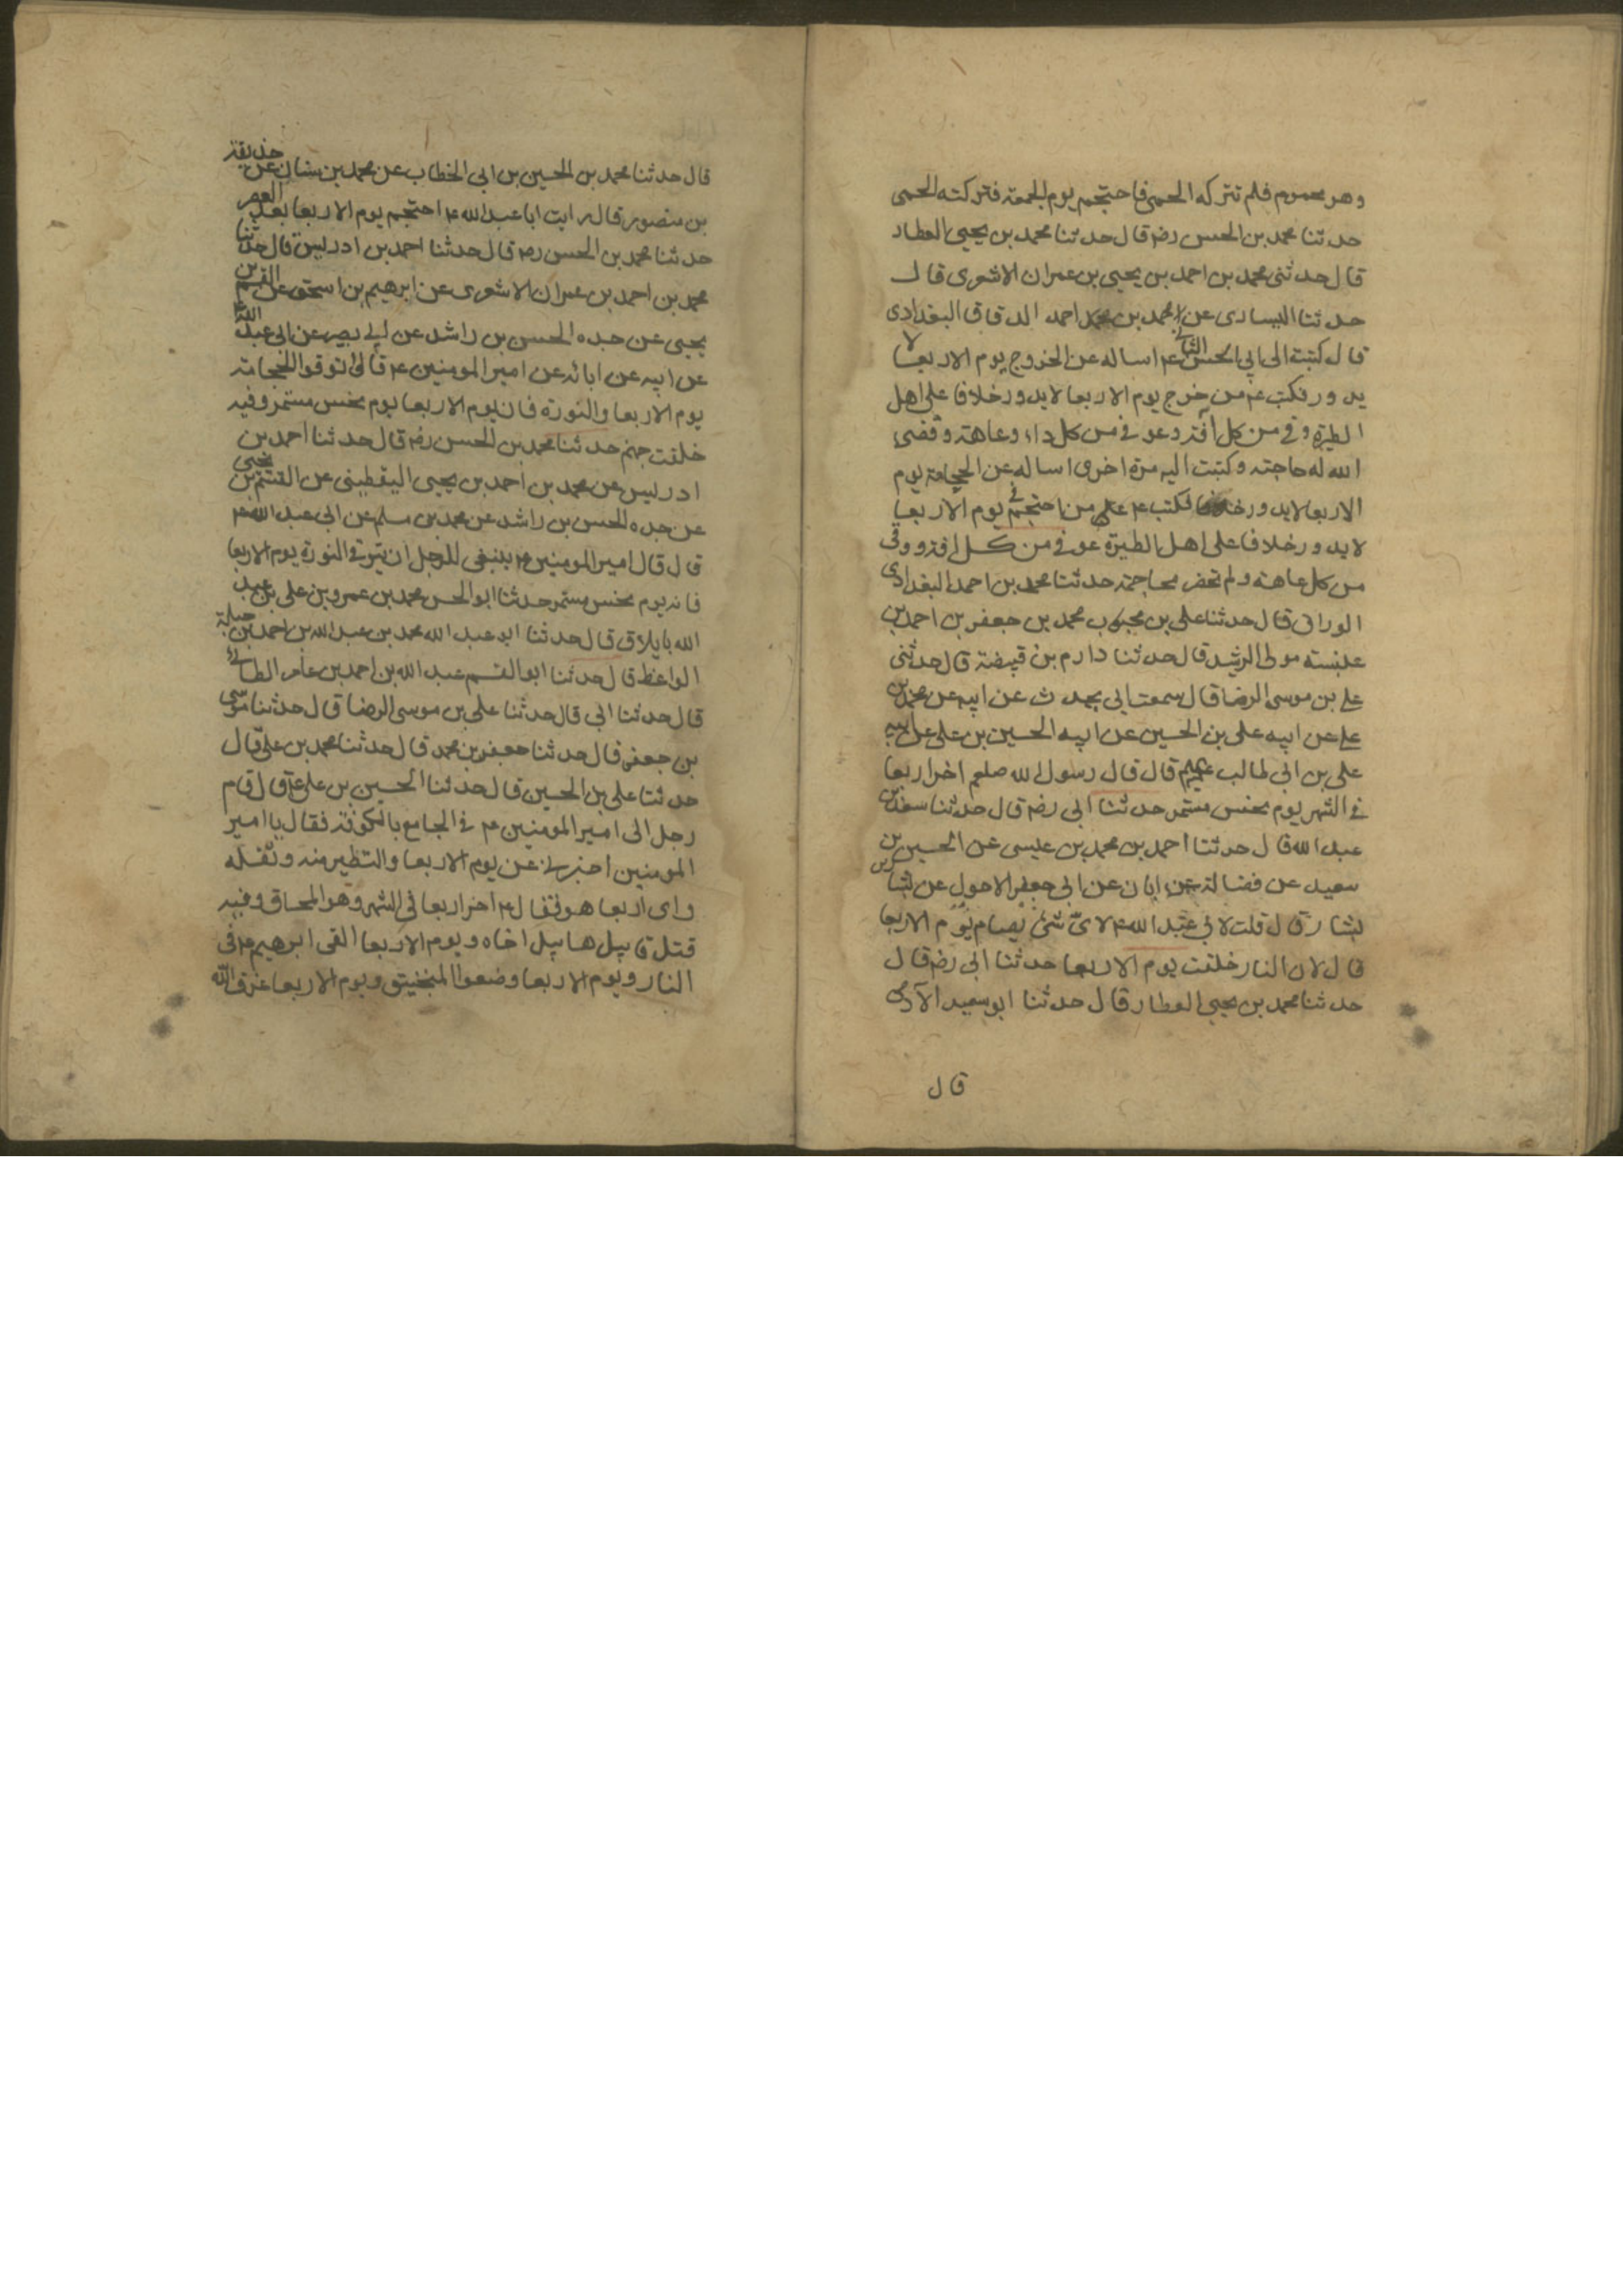 وهو محموم فلم تتركه الحمى فاحتجم يوم الجمعة فتركته الحمى
حدثنا محمد بن الحسن رضه قال حدثنا محمد بن يحيى العطار
قال حدثنى محمد بن احمد بن يحيى بن عمران الاشعرى قال
حدثنا السيارى عن محمد بن احمد الدقاق البغدادى
قال كتبت الى ابي الحسن الثانى ع اساله عن الخروج يوم الاربعا لا
يدور فكتب ع من خرج يوم الاربعا لا يدور خلافا على اهل
الطيرة وقى من كل آفة وعوفى من كل داء وعاهة وقضى
الله له حاجته وكتبت اليه مرة اخرى اساله عن الحجامة يوم
الاربعا لا يدور فكتب ع من احتجم في يوم الاربعا
لا يدور خلافا على اهل الطيرة عوفى من كل افة ووقى
من كل عاهة ولم تخضر محاجمة حدثنا محمد بن احمد البغدادى
الوراق قال حدثنا على بن محمد بن جعفر بن احمد بن
عنبسته مولى الرشيد قال حدثنا دارم بن قبيضة قال حدثنى
على بن موسى الرضا قال سمعت ابى يحدث عن ابيه عن محمد بن
على عن ابيه على بن الحسين عن ابيه الحسين بن على عن ابيه
على بن ابى طالب قال قال رسول الله صلعم اخر اربعا
فى الشهر يوم نحس مستمر حدثنا ابى رضه قال حدثنا سعد بن
عبد الله قال حدثنا احمد بن محمد بن عيسى عن الحسين بن
سعيد عن فضالة عن ابان عن ابى جعفر الاحول عن بشار بن
بشار قال قلت لابى عبد الله ع لاى شئ يصام يوم الاربعا
قال لان النار خلقت يوم الاربعا حدثنا ابى رضه قال
حدثنا محمد بن يحيى العطار قال حدثنا ابو سعيد الآدمى
قال
قال حدثنا محمد بن الحسين بن ابى الخطاب عن محمد بن سنان عن حذيفة
بن منصور قال رايت ابا عبد الله ع احتجم يوم الاربعا بعد العصر
حدثنا محمد بن الحسن رضه قال حدثنا احمد بن ادريس قال حدثنا
محمد بن احمد بن عمران الاشعرى عن ابرهيم بن اسحق عن القسم بن
يحيى عن جده الحسن بن راشد عن ابي بصير عن ابى عبد الله ع
عن ابيه عن ابائه عن امير المومنين ع قال توقوا الحجامة
يوم الاربعا والنورة فان يوم الاربعا يوم نحس مستمر وفيه
خلقت جهنم حدثنا محمد بن الحسن رضه قال حدثنا احمد بن
ادريس عن محمد بن احمد بن يحيى اليقطينى عن القسم بن يحيى
عن جده الحسن بن راشد عن محمد بن مسلم عن ابى عبد الله ع
قال قال امير المومنين ع ينبغى للرجل ان يتوقى النورة يوم الاربعا
فانه يوم نحس مستمر حدثنا ابو الحسن محمد بن عمرو بن على بن عبد
الله بايلاق قال حدثنا ابو عبد الله محمد بن عبد الله بن احمد بن جبلة
الواعظ قال حدثنا ابو القسم عبد الله بن احمد بن عامر الطائى
قال حدثنا ابى قال حدثنا على بن موسى الرضا قال حدثنا موسى
بن جعفر قال حدثنا جعفر بن محمد قال حدثنا محمد بن على قال
حدثنا على بن الحسين قال حدثنا الحسين بن على ع قال قام
رجل الى امير المومنين ع فى الجامع بالكوفة فقال يا امير
المومنين اخبرنى عن يوم الاربعا والتطير منه وثقله
واى اربعا هو فقال ع اخر اربعا فى الشهر وهو المحاق وفيه
قتل قابيل هابيل اخاه ويوم الاربعا القى ابرهيم ع فى
النار ويوم الاربعا وضعوا المنجنيق ويوم الاربعا غرق الله